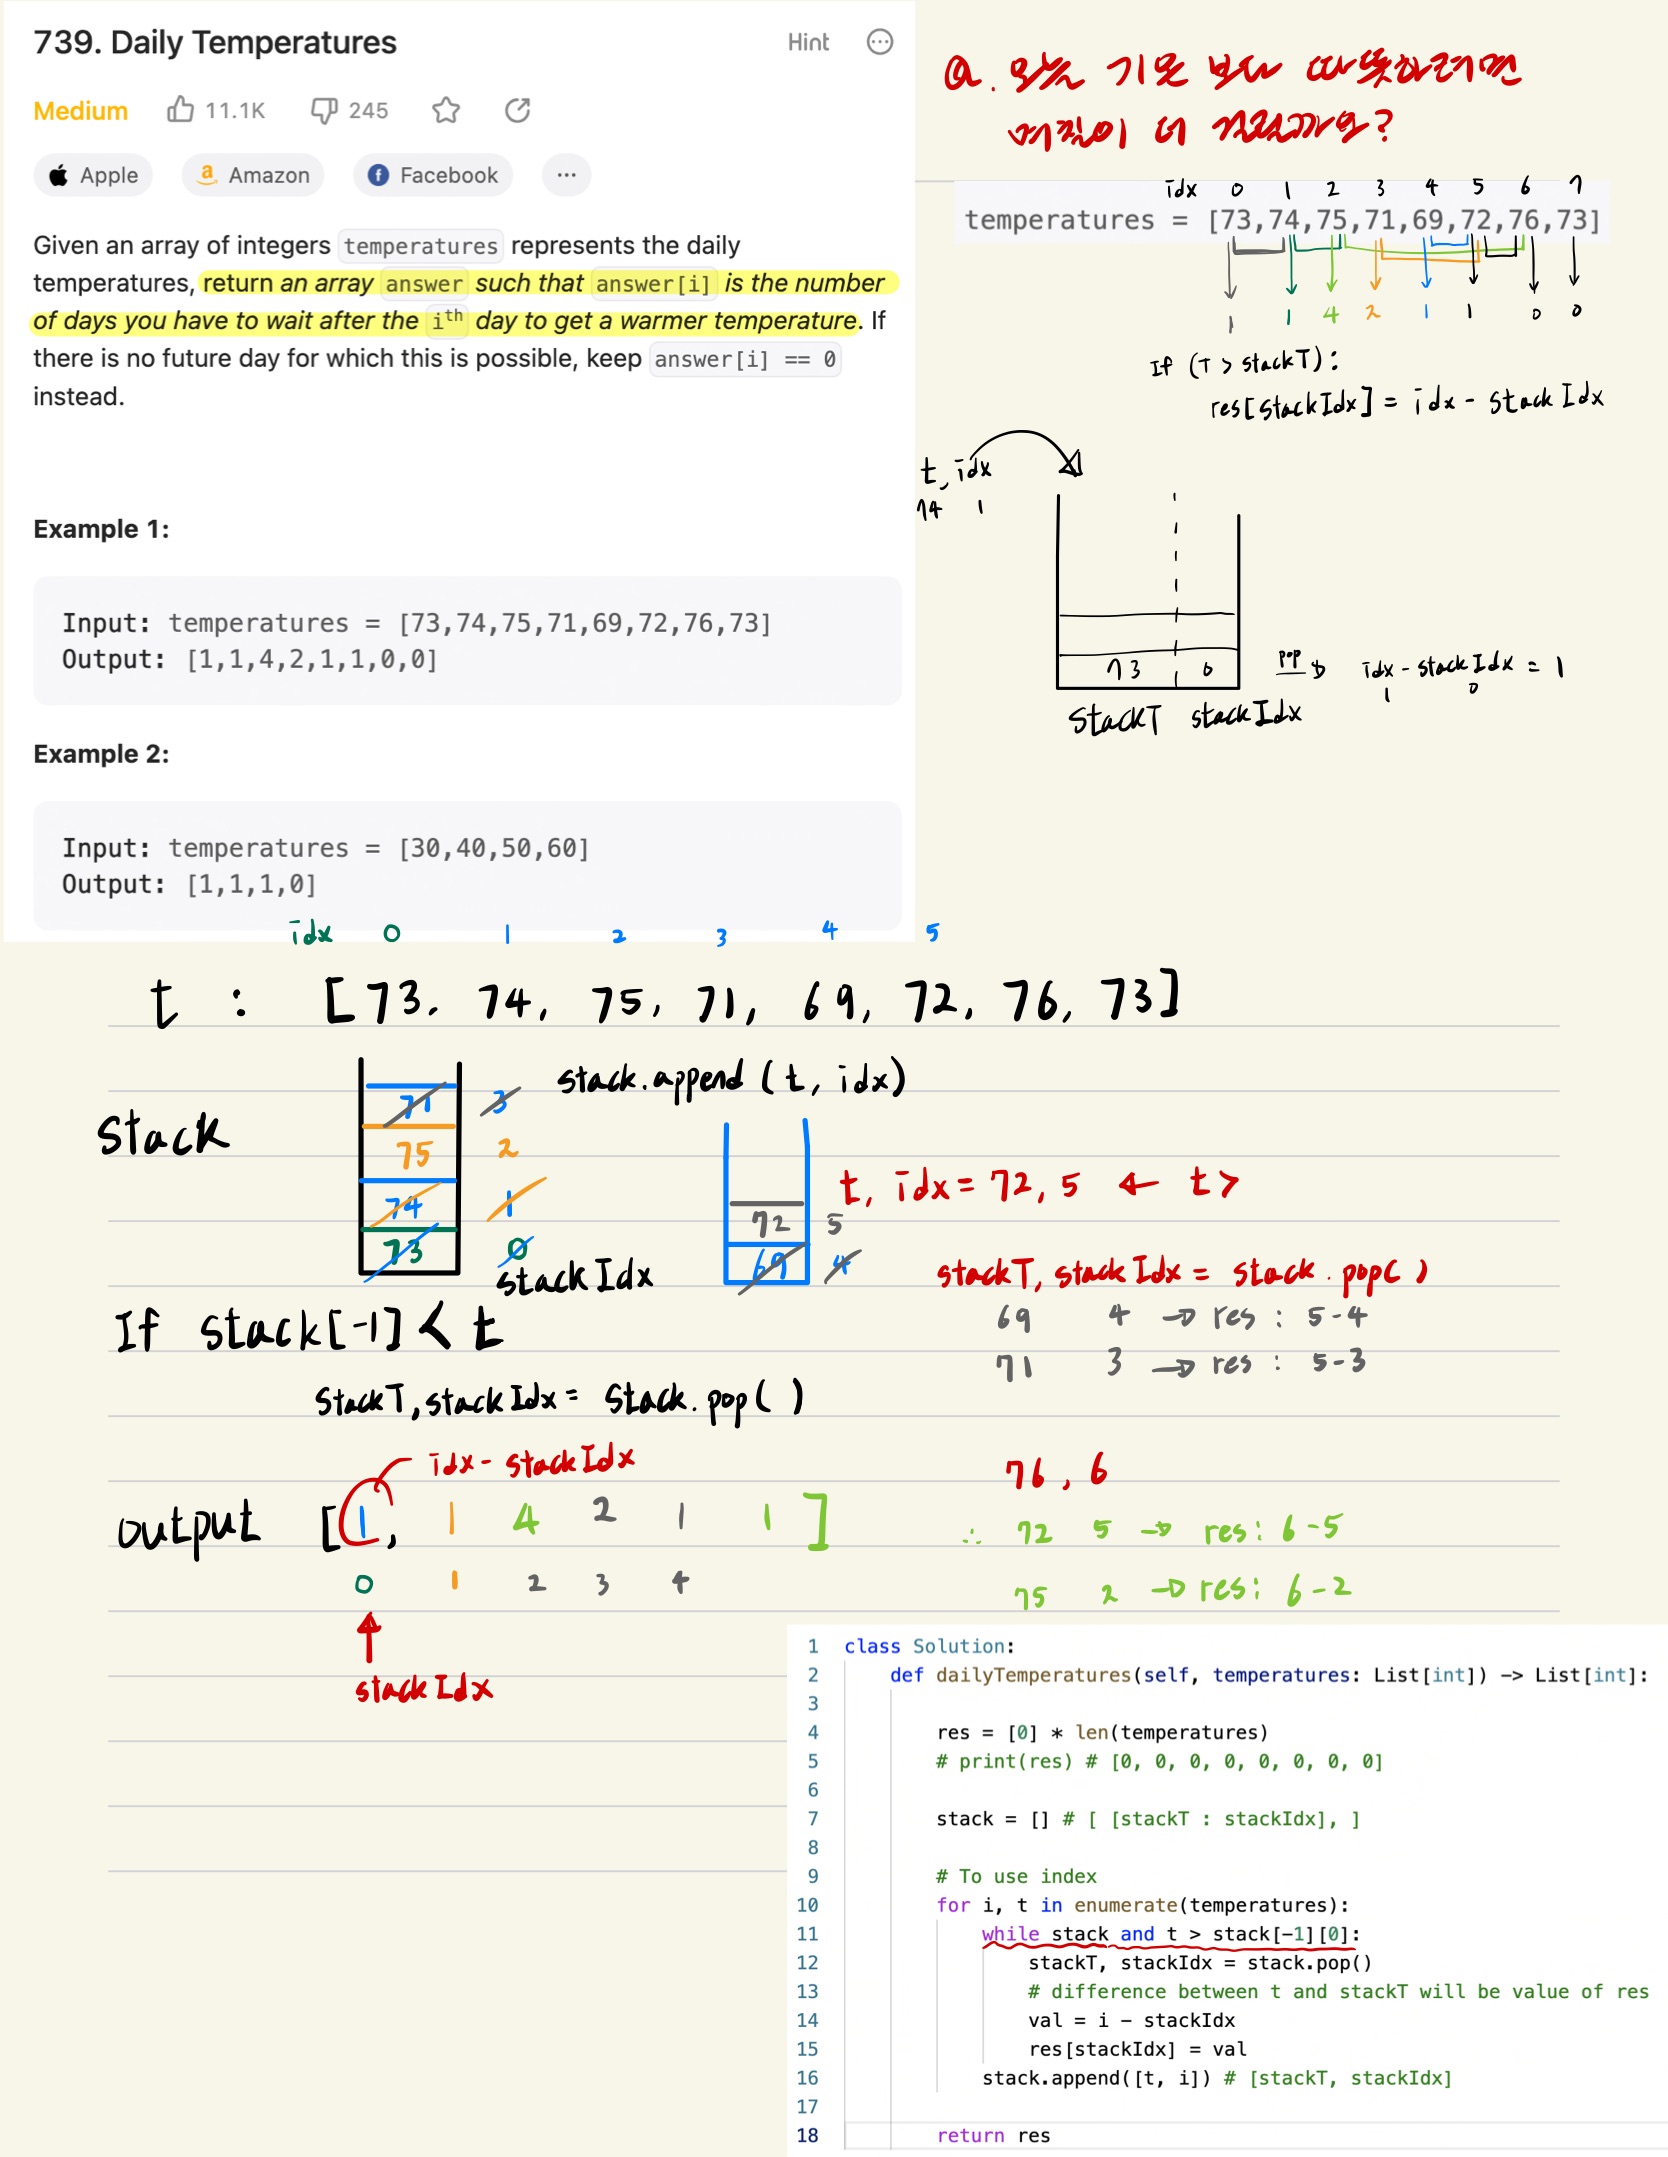 739. Daily Temperatures
Hint
Medium 11.1K 245
Apple Amazon Facebook ...
Given an array of integers temperatures represents the daily
temperatures, return an array answer such that answer[i] is the number
of days you have to wait after the ith day to get a warmer temperature. If
there is no future day for which this is possible, keep answer[i] == 0
instead.
Example 1:
Input: temperatures = [73,74,75,71,69,72,76,73]
Output: [1,1,4,2,1,1,0,0]
Example 2:
Input: temperatures = [30,40,50,60]
Output: [1,1,1,0]
Q. 오늘 기온 보다 따뜻하려면
며칠이 더 걸릴까요?
idx 0 1 2 3 4 5 6 7
temperatures = [73,74,75,71,69,72,76,73]
1 1 4 2 1 1 0 0
If (T > stackT):
res[stackIdx] = idx - stackIdx
t, idx
74 1
73 0
pop → idx - stackIdx = 1
1 0
StackT stackIdx
idx 0 1 2 3 4 5
t : [73. 74, 75, 71, 69, 72, 76, 73]
stack.append (t, idx)
Stack
71 3
75 2
74 1
73 0
stackIdx
72 5
69 4
t, idx = 72, 5 ← t >
stackT, stackIdx = stack.pop( )
69 4 → res : 5-4
71 3 → res : 5-3
If stack[-1] < t
StackT, stackIdx = Stack.pop( )
idx - stackIdx
output [1, 1 4 2 1 1 ]
0 1 2 3 4
stackIdx
76, 6
∴ 72 5 → res: 6-5
75 2 → res: 6-2
1 class Solution:
2 def dailyTemperatures(self, temperatures: List[int]) -> List[int]:
3
4 res = [0] * len(temperatures)
5 # print(res) # [0, 0, 0, 0, 0, 0, 0, 0]
6
7 stack = [] # [ [stackT : stackIdx], ]
8
9 # To use index
10 for i, t in enumerate(temperatures):
11 while stack and t > stack[-1][0]:
12 stackT, stackIdx = stack.pop()
13 # difference between t and stackT will be value of res
14 val = i - stackIdx
15 res[stackIdx] = val
16 stack.append([t, i]) # [stackT, stackIdx]
17
18 return res